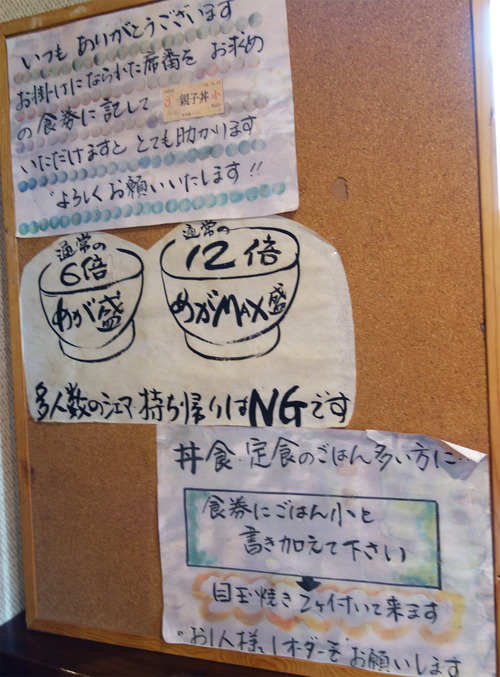 いつも ありがとうございます
お掛けになられた席番を お求め
の食券に記して
3 親子丼 小
いただけますと とても助かります
よろしくお願いいたします!!
通常の
6倍
めが盛
通常の
12倍
めがMAX盛
多人数のシェア・持ち帰りはNGです
丼食・定食のごはん多い方に…
食券にごはん小と
書き加えて下さい
目玉焼き 2ヶ付いて来ます
。お1人様、1オーダーをお願いします